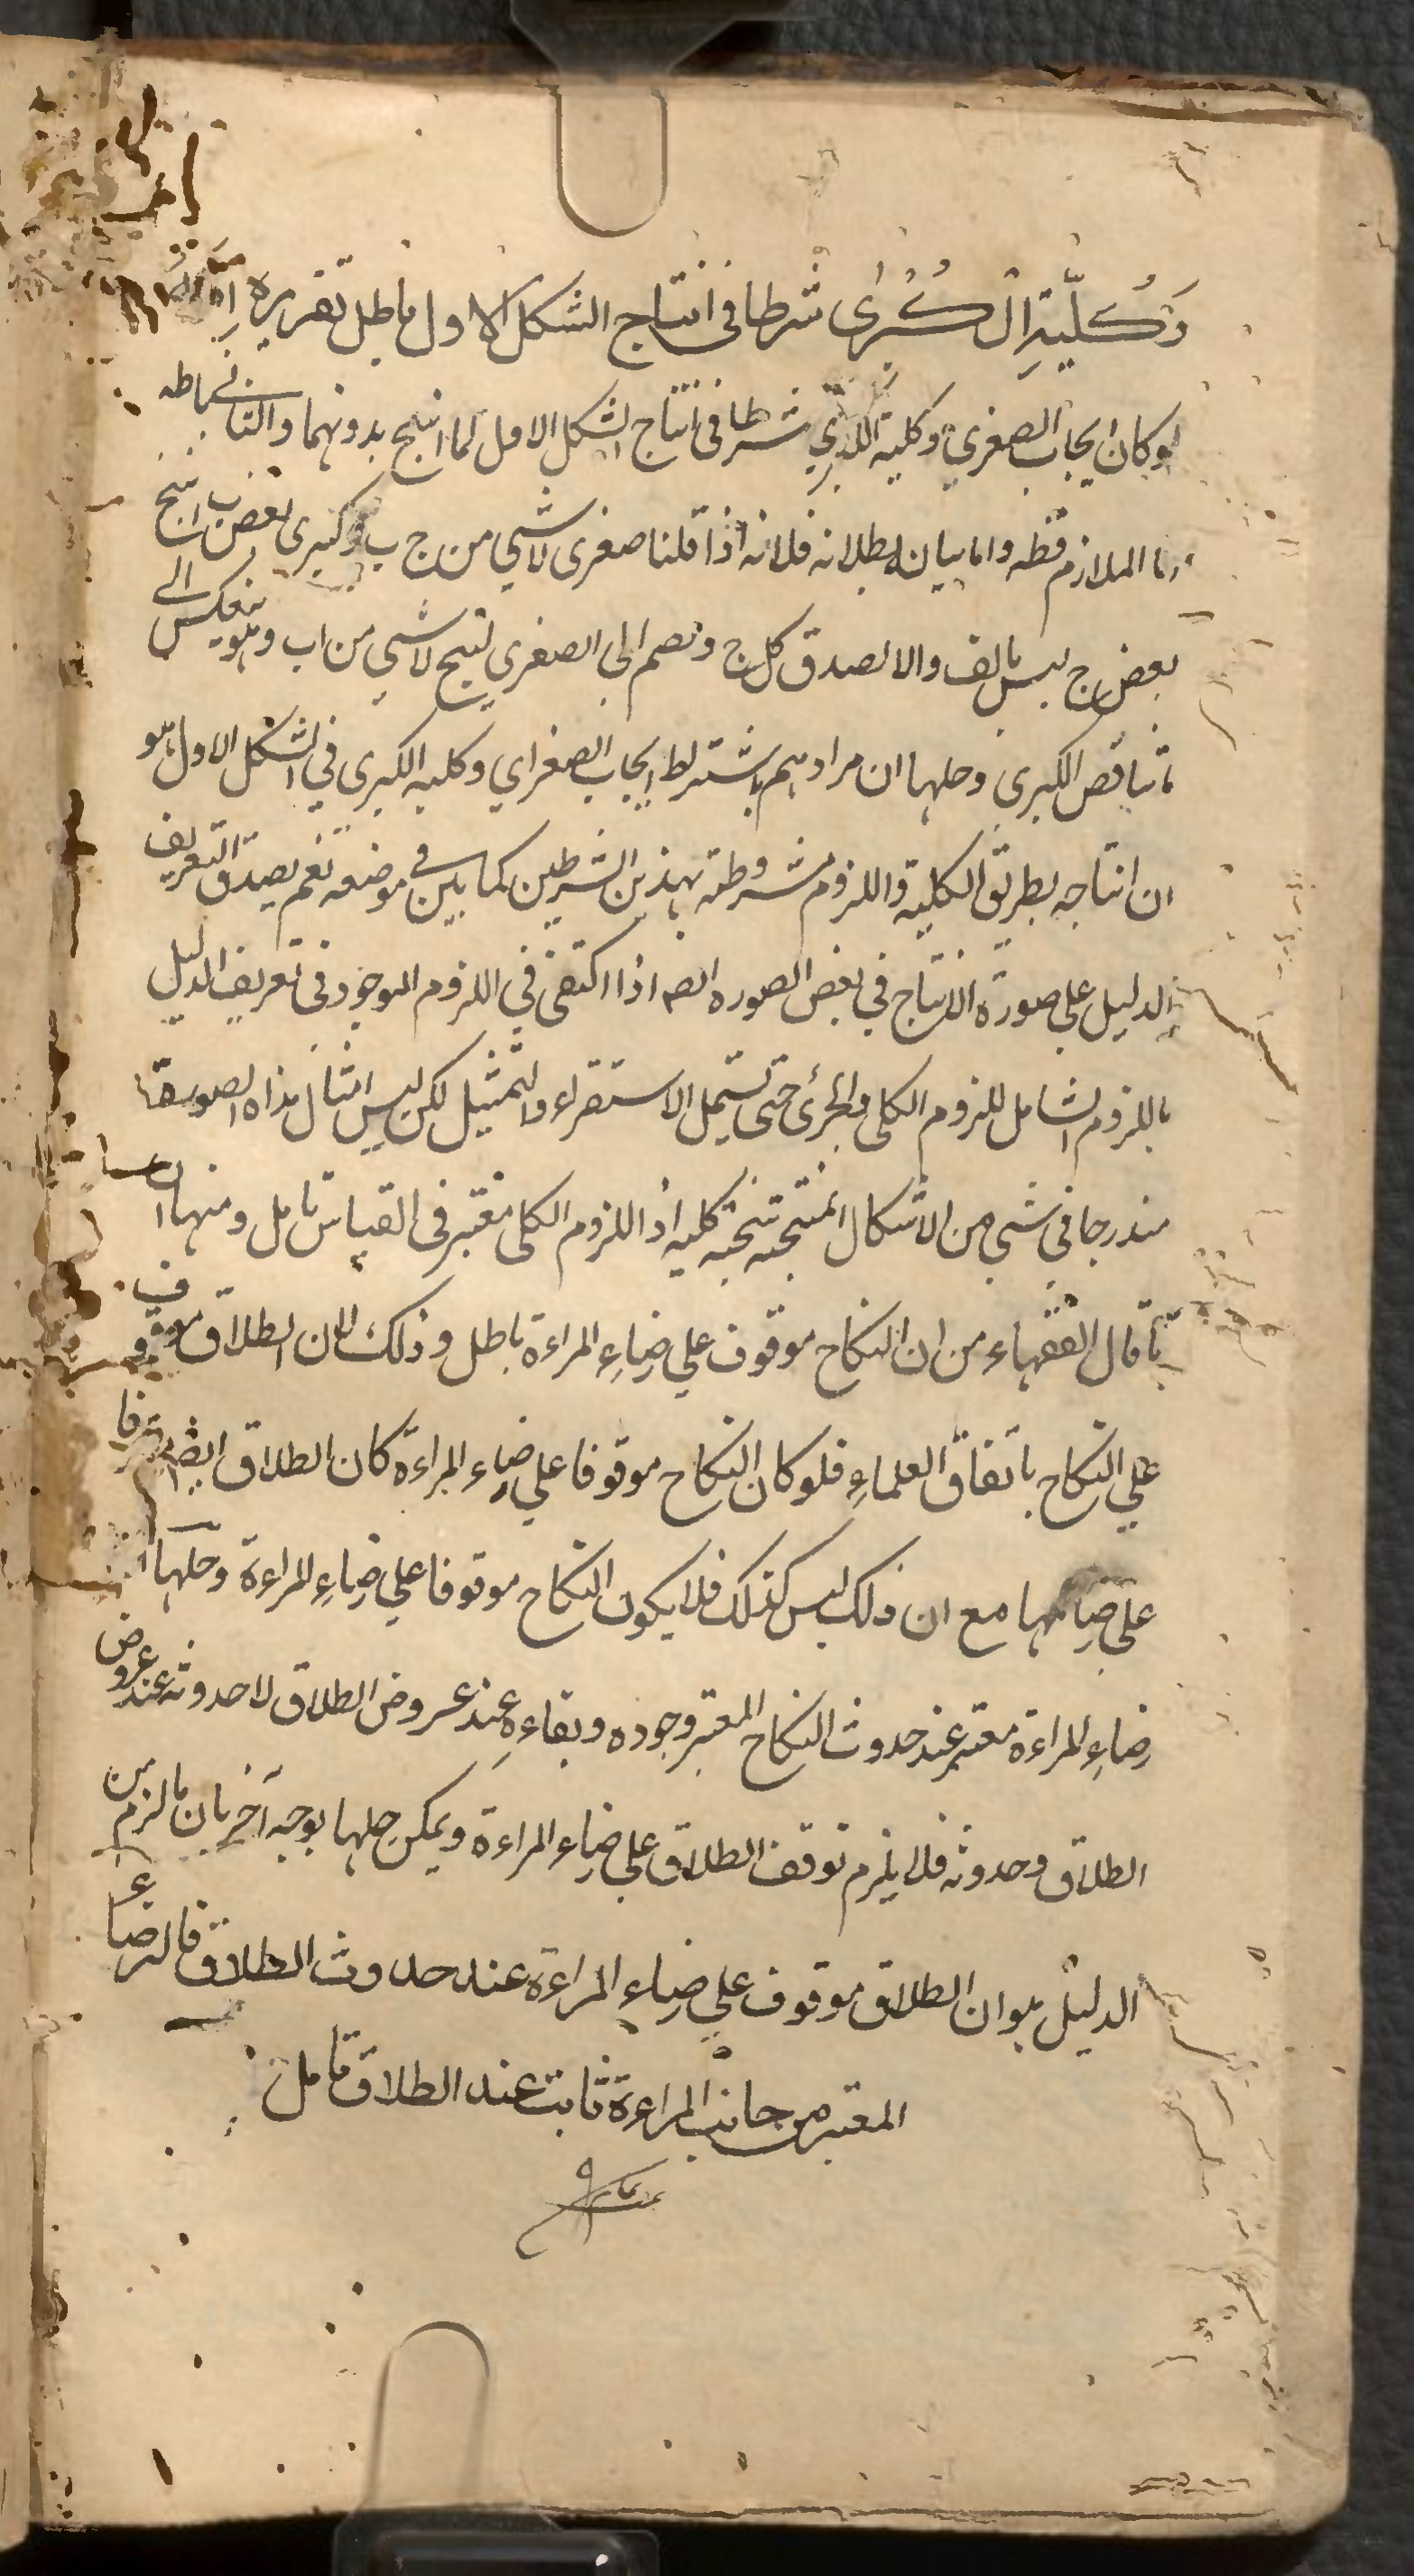 وَكُلِّيّةِ الْكُبْرٰى شرطا فى انتاج الشكل الاول باطل تقريره اِنّه
لو كان ايجاب الصغري وكلية الكبري شرطا فى انتاج الشكل الاول لما انتج بدونهما والتالى باطه
اما الملازم فظه واما بيان بطلانه فلانه اذا قلنا صغرى لا شي من ج ب وكبرى بعض ب ا ينتج
بعض ج ليس بالف والا لصدق كل ج ونضم الى الصغرى لتنتج لا شي من اب وهو ينعكس الى
ما يناقض الكبرى وحلها ان مرادهم باشتراط ايجاب الصغراي وكليه الكبرى فى الشكل الاول هو
ان انتاجه بطريق الكلية واللزوم مشروطة بهذين الشرطين كما بين فى موضعه نعم يصدق التعريف
الدليل على صورة الانتاج فى بعض الصوره ايضه اذا اكتفى فى اللزوم الموجود فى تعريف الدليل
باللزوم الشامل للزوم الكلى والجزئ حتى تشمل الاستقراء والتمثيل لكن ليس امثال هذاه الصورة
مندرجا فى شي من الاشكال المنتجه نتيجه كليه اذ اللزوم الكلى معتبر فى القياس تامل ومنها ان
ما قال الفقهاء من ان النكاح موقوف على ضاءِ المراءة باطل وذلك لان الطلاق موقوف
على النكاح باتفاق العلماءِ فلو كان النكاح موقوفا على ضاء المراءة كان الطلاق ايضا موقوفا
على ضائها مع ان ذلك ليس كذلك فلا يكون النكاح موقوفا على ضاءِ المراءة وحلها ان
رضاءِ المراءة معتبر عند حدوث النكاح المعتبر وجوده وبقاءِه عند عروض الطلاق لا حدوثه عند عروض
الطلاق وحدوثه فلا يلزم توقف الطلاق على ضاء المراءة ويمكن حلها بوجه آخر بان ما لزم من
الدليل هو ان الطلاق موقوف على ضاء المراءة عند حدوث الطلاق فالرضاء
المعتبر من جانب المراءة ثابت عند الطلاق تامل